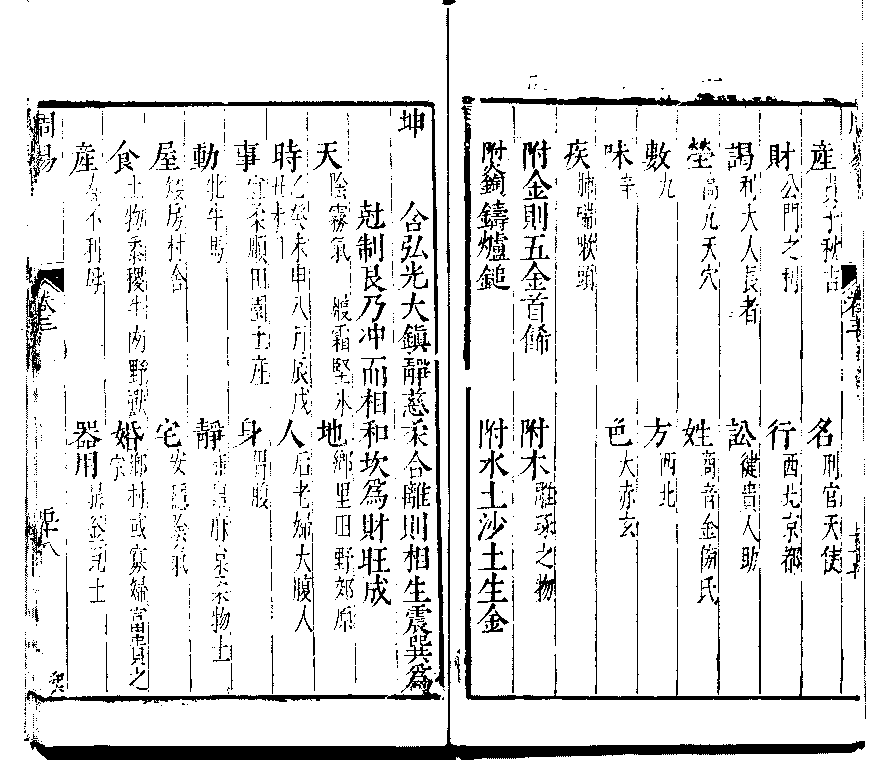 産 貴子秋吉 名 刑官天使
財 公門之利 行 西北京都
謁 利大人長者 訟 健貴人助
塋 高亢天穴 姓 商音金傍氏
數 九 方 西北
味 辛 色 大赤玄
疾 肺喘喉頭
附金則五金首餙 附木 雕琢之物
附火銅鑄爐鎚 附水土沙土生金
坤
含弘光大鎮靜慈柔合離則相生震巽爲
尅制艮乃冲而相和坎爲財旺成
天 陰霧氣 霜堅冰 地 鄉里田野郊原
時 乙癸未申八月辰戌 人 后老婦大腹人
事 宜柔順田園土産 身 胃腹
動 牝牛馬 靜 柔物土
屋 矮房村舍 宅 安穩陰氣
食 土物黍稷牛肉野 婚 鄉村或寡婦富貴之
産 不利母 器用 釜瓦土
周易
卷三